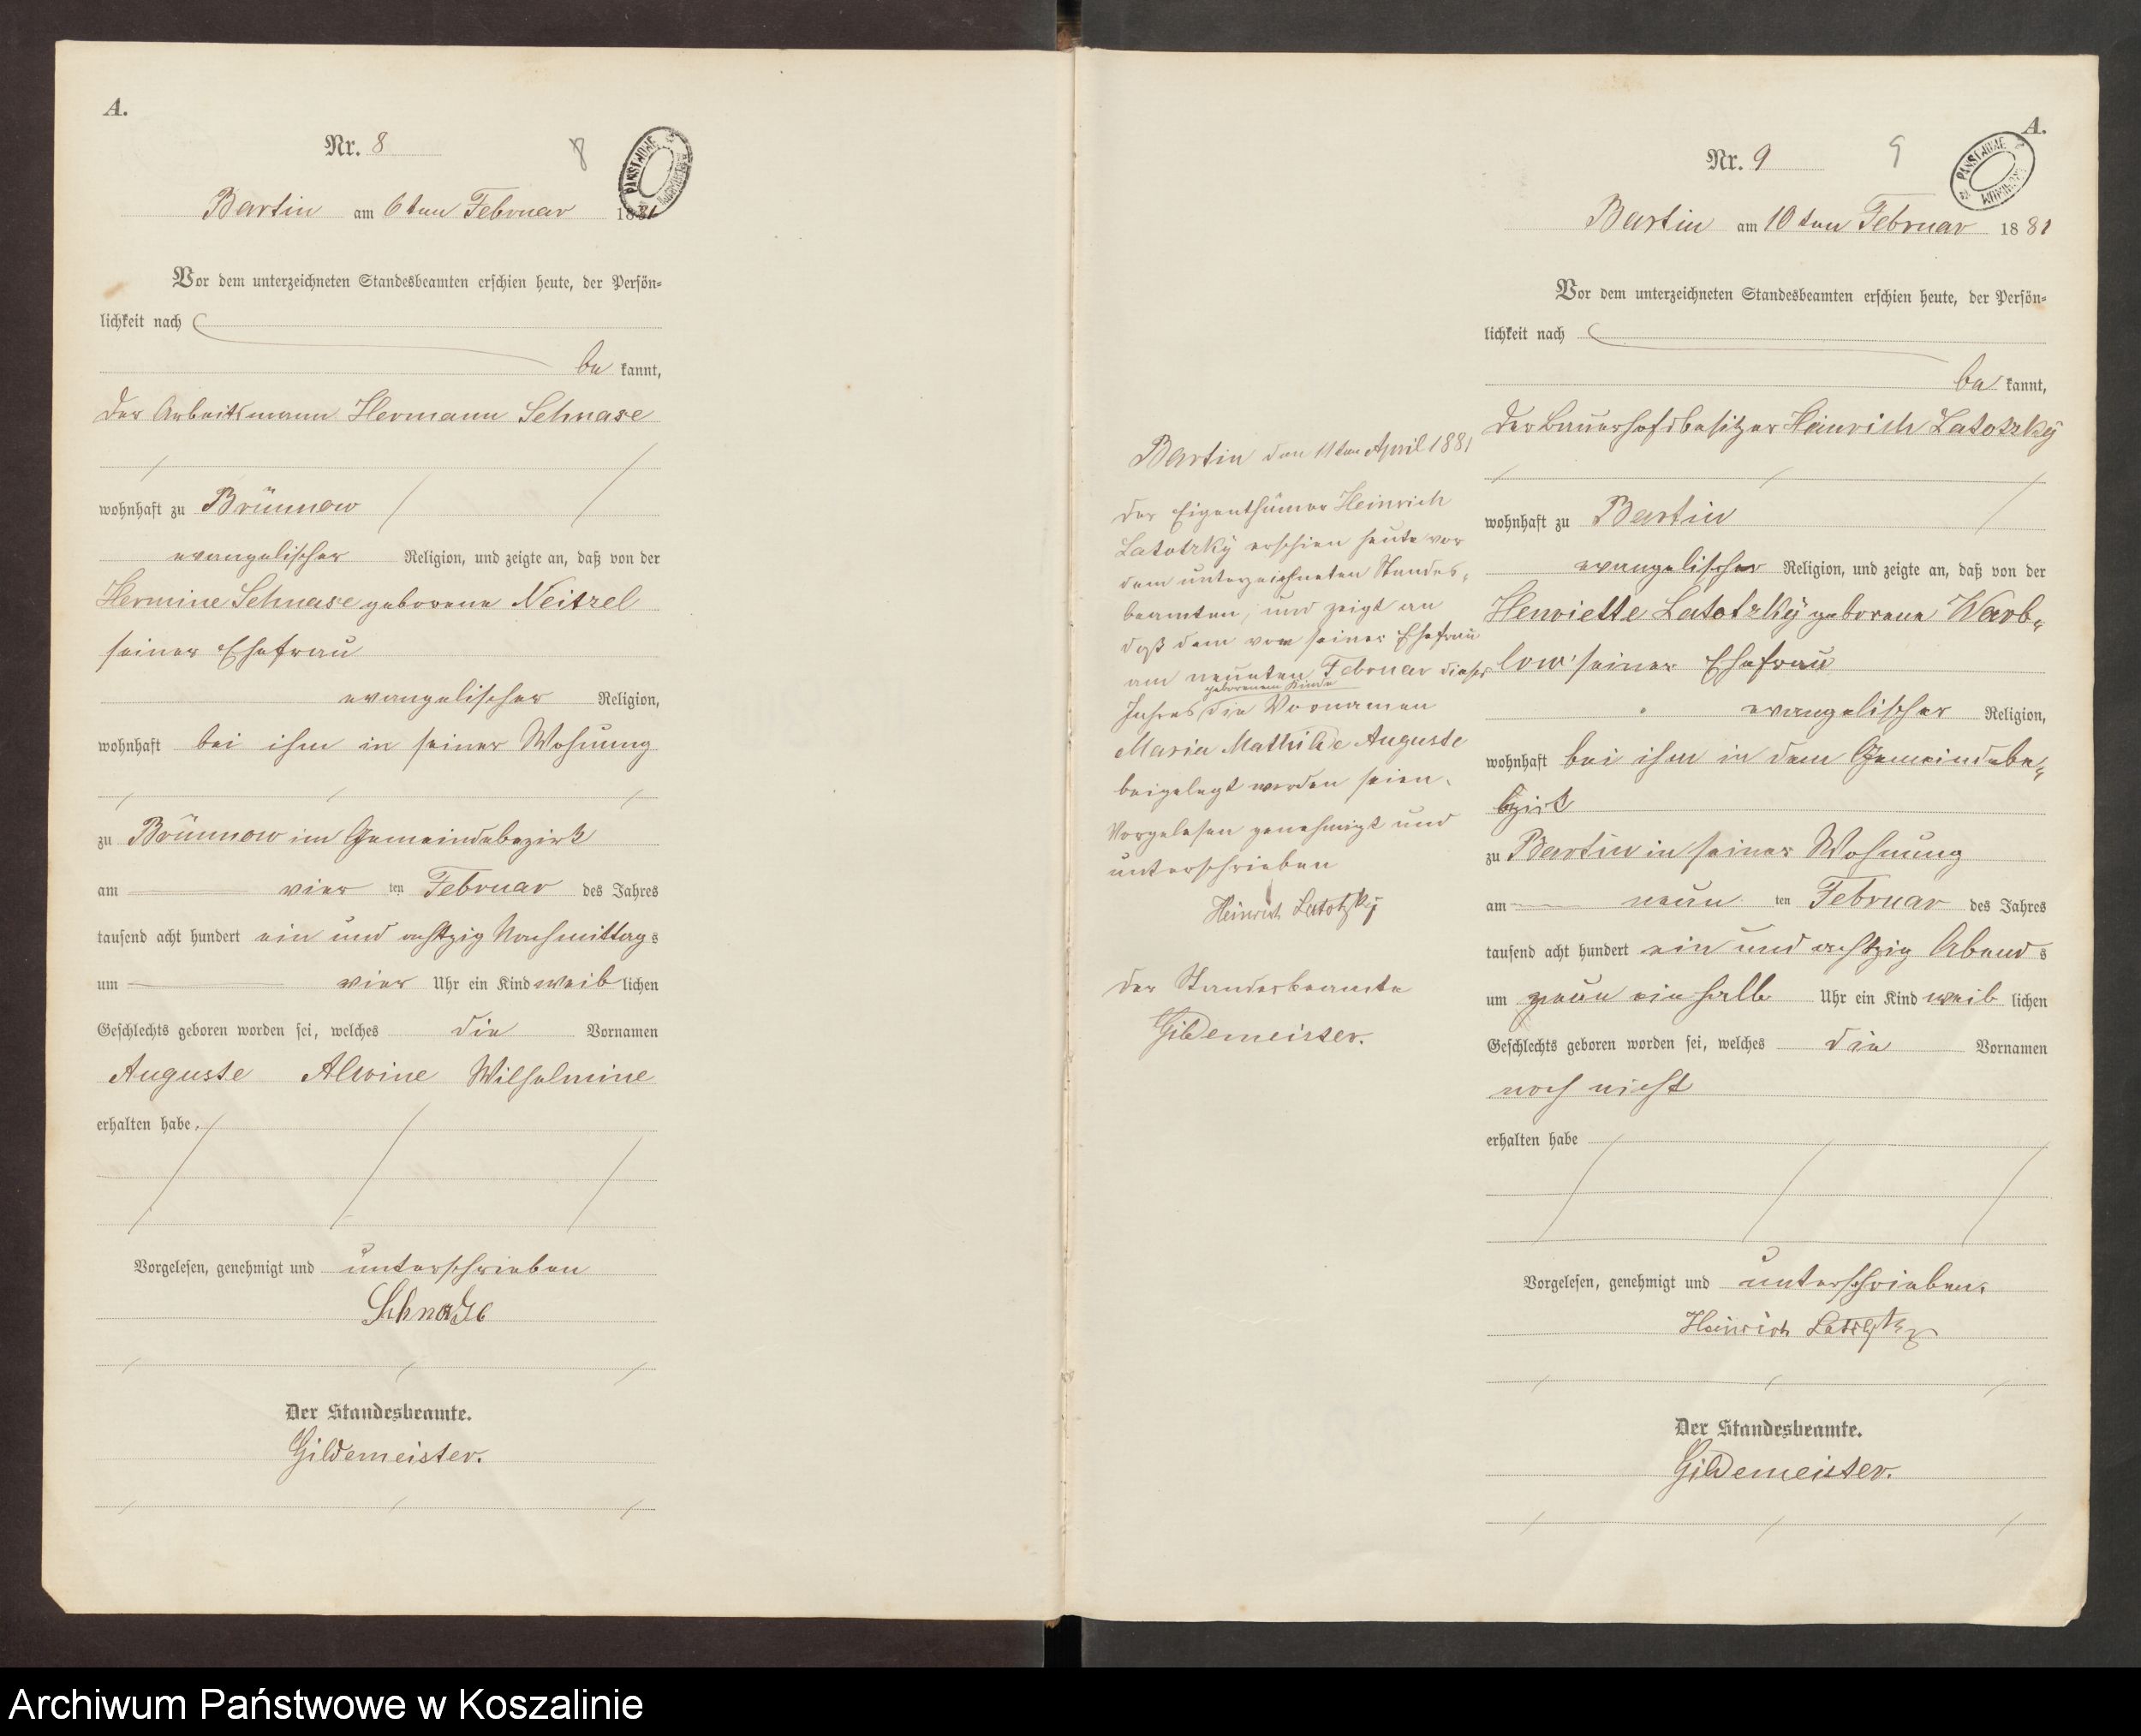 A.
Nr. 8
8
Bartin am 6ten Februar 1881
Vor dem unterzeichneten Standesbeamten erschien heute, der Persön-
lichkeit nach
be kannt,
der Arbeitsmann Hermann Schnase
wohnhaft zu Brünnow
evangelischer Religion, und zeigte an, daß von der
Hermine Schnase geborene Neitzel
seiner Ehefrau
evangelischer Religion,
wohnhaft bei ihm in seiner Wohnung
zu Brünnow im Gemeindebezirk
am vier ten Februar des Jahres
tausend acht hundert ein und achtzig Nachmittags
um vier Uhr ein Kind weib lichen
Geschlechts geboren worden sei, welches die Vornamen
Auguste Alwine Wilhelmine
erhalten habe.
Vorgelesen, genehmigt und unterschrieben
Schnase
Der Standesbeamte.
Gildemeister.
A.
Nr. 9
9
Bartin am 10ten Februar 1881
Vor dem unterzeichneten Standesbeamten erschien heute, der Persön-
lichkeit nach
be kannt,
der Bauerhofsbesitzer Heinrich Latotzky
wohnhaft zu Bartin
evangelischer Religion, und zeigte an, daß von der
Henriette Latotzky geborene Warb-
low seiner Ehefrau
evangelischer Religion,
wohnhaft bei ihm in dem Gemeindebe-
zirk
zu Bartin in seiner Wohnung
am neun ten Februar des Jahres
tausend acht hundert ein und achtzig Abends
um neun ein halb Uhr ein Kind weib lichen
Geschlechts geboren worden sei, welches die Vornamen
noch nicht
erhalten habe
Vorgelesen, genehmigt und unterschrieben.
Heinrich Latotzky
Der Standesbeamte.
Gildemeister.
Bartin den 11ten April 1881
Der Eigenthümer Heinrich
Latotzky erschien heute vor
dem unterzeichneten Standes-
beamten, und zeigt an
daß dem von seiner Ehefrau
am neunten Februar dieses
geborenem Kinde
Jahres die Vornamen
Maria Mathilde Auguste
beigelegt worden seien.
Vorgelesen genehmigt und
unterschrieben
Heinrich Latotzky
Der Standesbeamte
Gildemeister.
Archiwum Państwowe w Koszalinie